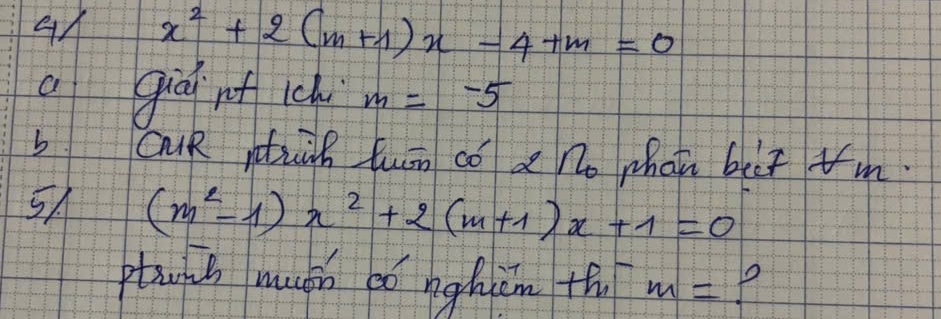 4/ x² + 2(m+1)x - 4 + m = 0
a. Giải pt khi m = -5
b. CMR ptrình luôn có 2 no phân biệt ∀m.
5/. (m²-1)x² + 2(m+1)x + 1 = 0
ptrình muốn có nghiệm thì m = ?